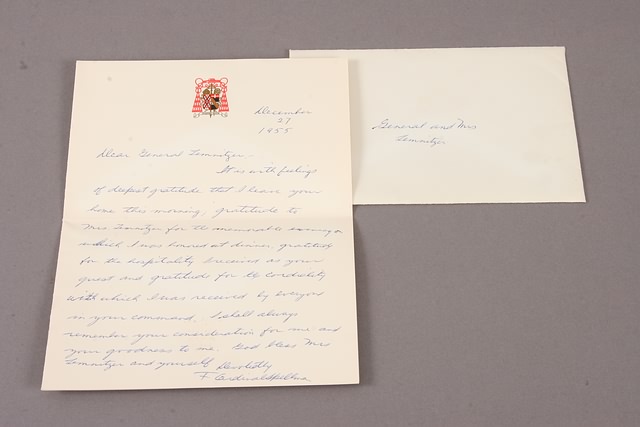 December
27
1955
Dear General Lemnitzer -
It is with feelings
of deepest gratitude that I leave your
home this morning, gratitude to
Mrs. Lemnitzer for the memorable evening on
which I was honored at dinner, gratitude
for the hospitality I received as your
guest and gratitude for the cordiality
with which I was received by everyone
in your command. I shall always
remember your consideration for me and
your goodness to me. God bless Mrs
Lemnitzer and yourself. Devotedly
F. Cardinal Spellman
General and Mrs
Lemnitzer